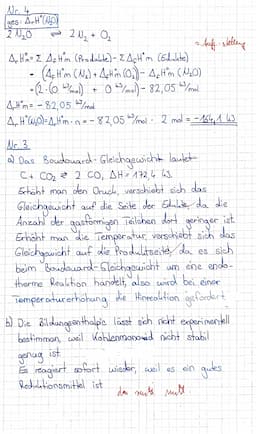 Nr. 4
ges: ΔrH°(N₂O)
2 N₂O ⇌ 2 N₂ + O₂
ΔrH°m = Σ ΔfH°m (Produkte) - Σ ΔfH°m (Edukte)
= (ΔfH°m (N₂) + ΔfH°m (O₂)) - ΔfH°m (N₂O)
= (2·(0 kJ/mol) + 0 kJ/mol) - 82,05 kJ/mol
ΔrH°m = - 82,05 kJ/mol
ΔrH°(N₂O) = ΔrH°m · n = - 82,05 kJ/mol · 2 mol = - 164,1 kJ
Nr. 3
a) Das Boudouard-Gleichgewicht lautet
C + CO₂ ⇌ 2 CO, ΔH = 172,4 kJ.
Erhöht man den Druck, verschiebt sich das
Gleichgewicht auf die Seite der Edukte, da die
Anzahl der gasförmigen Teilchen dort geringer ist.
Erhöht man die Temperatur, verschiebt sich das
Gleichgewicht auf die Produktseite, da es sich
beim Boudouard-Gleichgewicht um eine endo-
therme Reaktion handelt, also wird bei einer
Temperaturerhöhung die Hinreaktion gefördert.
b) Die Bildungsenthalpie lässt sich nicht experimentell
bestimmen, weil Kohlenmonoxid nicht stabil
genug ist.
Es reagiert sofort wieder, weil es ein gutes
Reduktionsmittel ist.